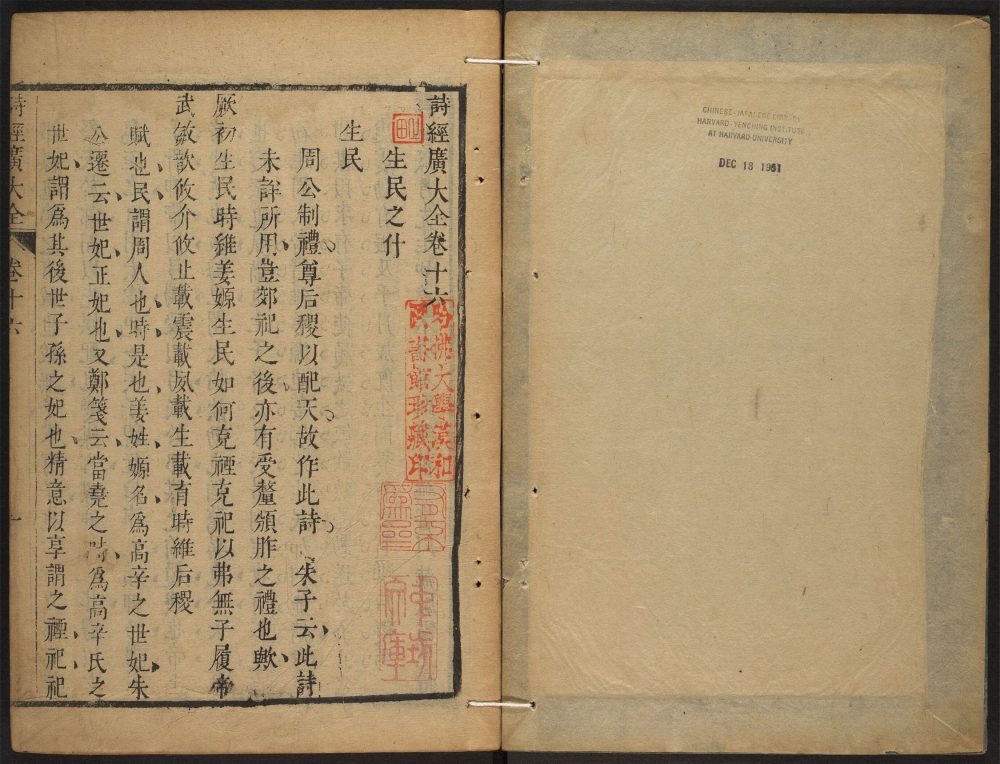 CHINESE-JAPANESE LIBRARY
HARVARD-YENCHING INSTITUTE
AT HARVARD UNIVERSITY
DEC 18 1951
詩經廣大全卷十六
哈佛大學漢和
圖書館珍藏印
生民之什
生民
周公制禮尊后稷以配天故作此詩 朱子云此詩
未詳所用豈郊祀之後亦有受釐頒胙之禮也歟
厥初生民時維姜嫄生民如何克禋克祀以弗無子履帝
武敏歆攸介攸止載震載夙載生載育時維后稷
賦也民謂周人也時是也姜姓嫄名爲高辛之世妃朱
公遷云世妃正妃也又鄭箋云當堯之時爲高辛氏之
世妃謂爲其後世子孫之妃也精意以享謂之禋祀祀
詩經廣大全 卷十六 一